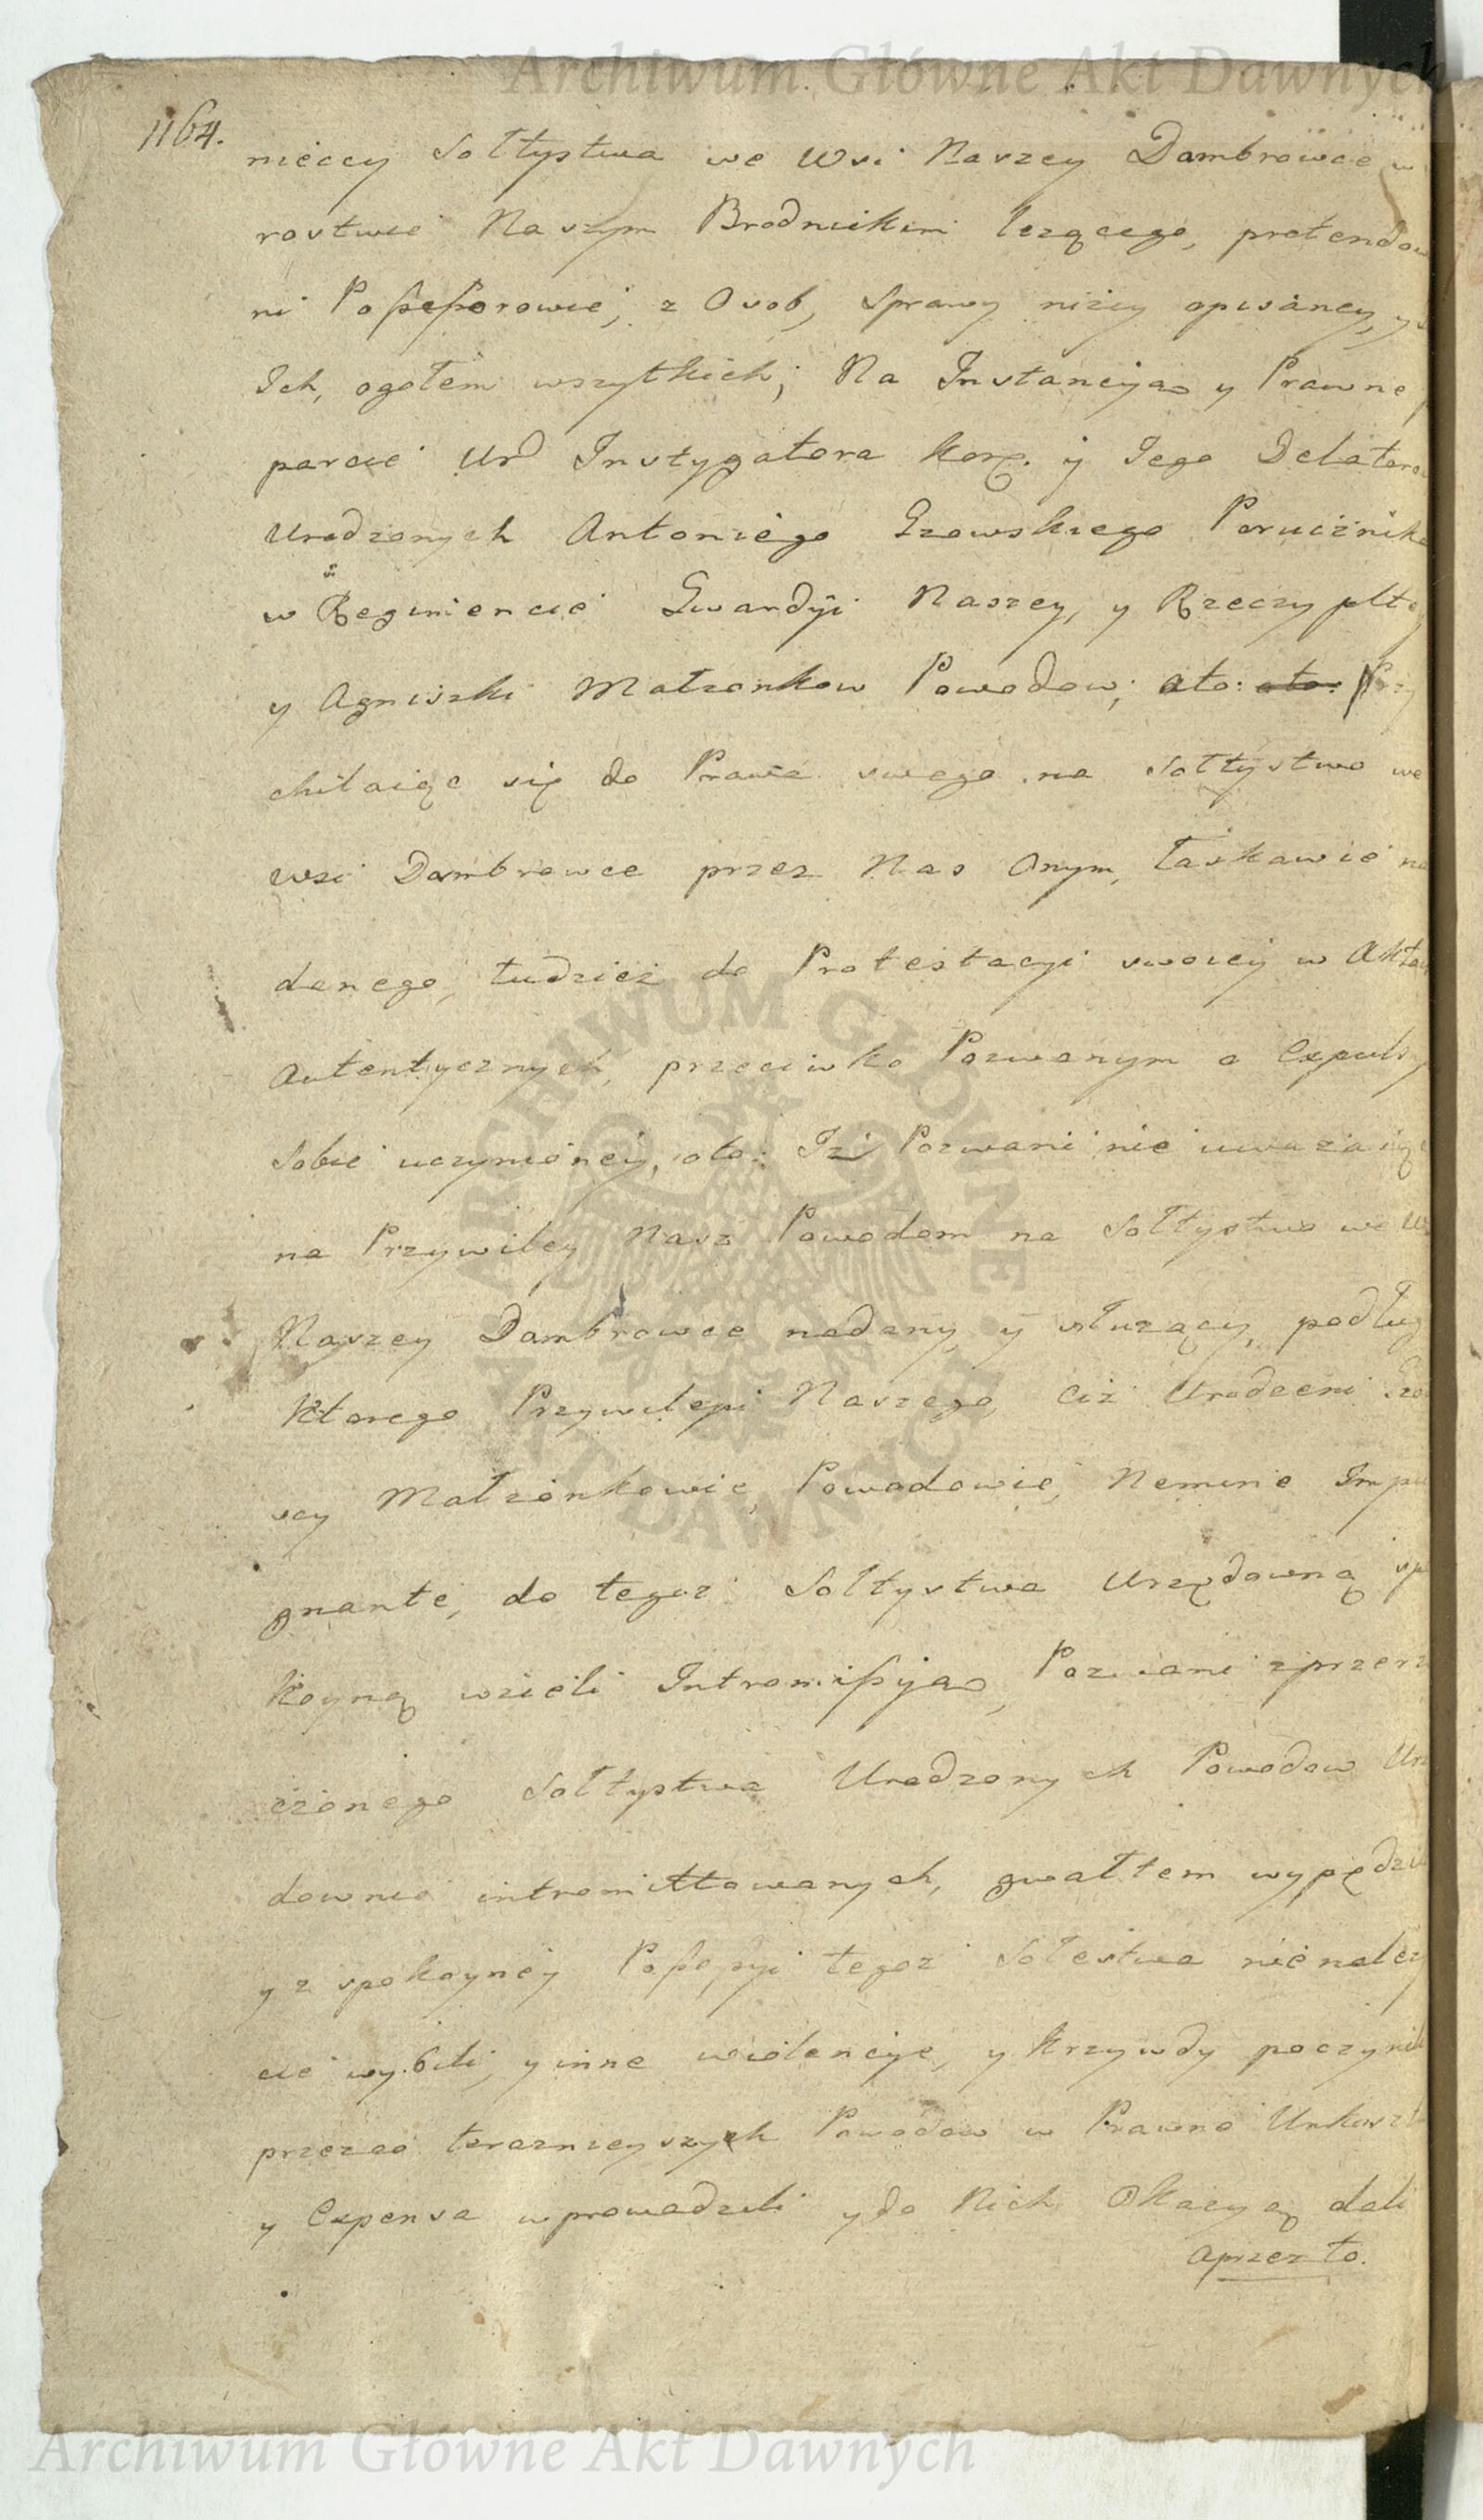 Archiwum Główne Akt Dawnych
1164.
nieccy Sołtystwa we Wsi Naszey Dambrowce w
rostwie Naszym Brodnickim lezącego, pretendow
ni Possessorowie, z Osob, Sprawy niżey opisaney, y
Ich, ogołem wszytkich; Na Instancyją y Prawne
parcie Ur Instygatora Kor. y Jego Delatoro
Urodzonych Antoniego Gzowskiego Porucznika
w Regimencie Gwardyi Naszey, y Rzeczyplte
y Agniszki Małzonkow Powodow; oto: oto: Przy
chilaiąc się do Prawa swego na Sołtystwo we
wsi Dambrowce przez Nas Onym, łaskawie na
danego, tudzież do Protestacyi swoiey w Aktach
Autentycznych, przeciwko Pozwanym o Expulsy
Sobie uczynioney, oto: Iż Pozwani nie uważaiąc
na Przywiley Nasz Powodom na Sołtystwo we W
Naszey Dambrowce nadany y służący, podług
Ktorego Przywileyu Naszego, Ciż Urodzeni Gzo
scy Małzonkowie, Powodowie, Nemine Impu
gnante, do tegoz Sołtystwa Urzędowną spo
koyną wzieli Intromissyją, Pozwani zprzerz
czonego Sołtystwa Urodzonych Powodow Urz
downie intromittowanych, gwałtem wypędzi
y z spokoyney Possessyi tegoz Sołestwa nienależy
cie wybili, y inne wiolencye, y Krzywdy poczynili
przezco teraznieyszych Powodow w Prawne Unkoszta
y Expensa wprowadzili y do Nich Okazyą dali
aprzez to.
ARCHIWUM GŁÓWNE AKT DAWNYCH
Archiwum Główne Akt Dawnych